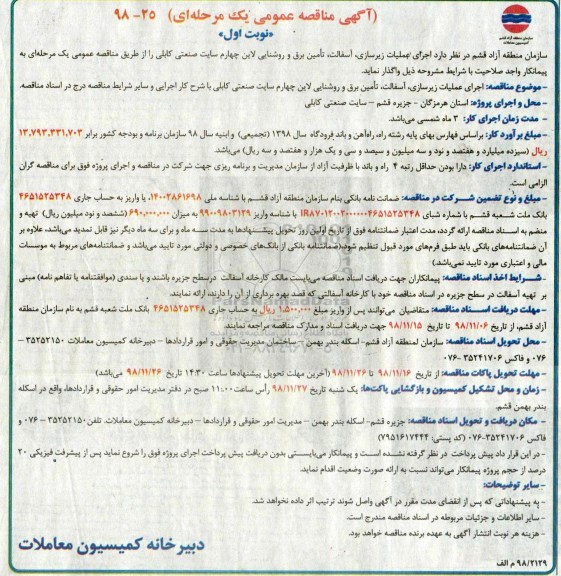 (آگهی مناقصه عمومی یک مرحله‌ای) ۲۵- ۹۸
«نوبت اول»
سازمان منطقه آزاد قشم
کمیسیون معاملات
سازمان منطقه آزاد قشم در نظر دارد اجرای عملیات زیرسازی، آسفالت، تأمین برق و روشنایی لاین چهارم سایت صنعتی کابلی را از طریق مناقصه عمومی یک مرحله‌ای به
پیمانکار واجد صلاحیت با شرایط مشروحه ذیل واگذار نماید.
-موضوع مناقصه: اجرای عملیات زیرسازی، آسفالت، تأمین برق و روشنایی لاین چهارم سایت صنعتی کابلی با شرح کار اجرایی و سایر شرایط مناقصه درج در اسناد مناقصه.
- محل و اجرای پروژه: استان هرمزگان - جزیره قشم – سایت صنعتی کابلی
- مدت زمان اجرای کار: ۳ ماه شمسی می‌باشد.
-مبلغ برآورد کار: براساس فهارس بهای پایه رشته راه، راه‌آهن و باند فرودگاه سال ۱۳۹۸ (تجمیعی) و ابنیه سال ۹۸ سازمان برنامه و بودجه کشور برابر ۱۳,۷۹۳,۳۳۱,۷۰۳
ریال (سیزده میلیارد و هفتصد و نود و سه میلیون و سیصد و سی و یک هزار و هفتصد و سه ریال) می‌باشد.
- استاندارد اجرای کار: دارا بودن حداقل رتبه ۴ راه و باند با ظرفیت آزاد از سازمان مدیریت و برنامه ریزی جهت شرکت در مناقصه و اجرای پروژه فوق برای مناقصه گران
الزامی است.
- مبلغ و نوع تضمین شرکت در مناقصه: ضمانت نامه بانکی بنام سازمان منطقه آزاد قشم با شناسه ملی ۱۴۰۰۳۸۶۱۶۹۸، یا واریز به حساب جاری ۴۶۵۱۵۲۵۳۴۸
بانک ملت شعبه قشم با شماره شبای IR۸۷۰۱۲۰۰۲۰۰۰۰۰۰۴۶۵۱۵۲۵۳۴۸ با شناسه واریز ۹۹۰۰۹۸۰۳۱۲۹ به میزان ۶۹۰,۰۰۰,۰۰۰ (ششصد و نود میلیون ریال) تهیه و
منضم به اسناد مناقصه ارائه گردد، مدت اعتبار ضمانتنامه فوق از تاریخ اولین روز تحویل پیشنهادها به مدت سه ماه و برای سه ماه دیگر نیز قابل تمدید می‌باشد، علاوه بر
آن ضمانتنامه‌های بانکی باید طبق فرم‌های مورد قبول تنظیم شود، (ضمانتنامه بانکی از بانک‌های خصوصی و دولتی مورد تایید می‌باشد و ضمانتنامه‌های مربوط به موسسات
مالی و اعتباری مورد تایید نمی‌باشد.)
-شرایط اخذ اسناد مناقصه: پیمانکاران جهت دریافت اسناد مناقصه می‌بایست مالک کارخانه آسفالت در سطح جزیره باشند و یا سندی (موافقتنامه یا تفاهم نامه) مبنی
بر تهیه آسفالت در سطح جزیره در اسناد مناقصه خود با کارخانه آسفالتی که قصد بهره برداری از آن را دارند، ارائه نمایند.
- مهلت دریافت اسناد مناقصه: متقاضیان می‌توانند پس از واریز مبلغ ۱,۵۰۰,۰۰۰ ریال به حساب جاری ۴۶۵۱۵۲۵۳۴۸ بانک ملت شعبه قشم به نام سازمان منطقه
آزاد قشم، از تاریخ ۹۸/۱۱/۰۶ تا تاریخ ۹۸/۱۱/۱۵ جهت دریافت اسناد و مدارک مناقصه مراجعه نمایند.
- محل تحویل اسناد مناقصه: سازمان منطقه آزاد قشم - اسکله بندر بهمن – ساختمان مدیریت حقوقی و امور قراردادها – دبیرخانه کمیسیون معاملات ۳۵۲۵۲۱۵۰ –
۰۷۶ و فاکس ۳۵۲۴۱۷۰۶ -۰۷۶
-مهلت تحویل پاکات مناقصه: از تاریخ ۹۸/۱۱/۱۶ تا ۹۸/۱۱/۲۶ (آخرین مهلت تحویل پیشنهادها ساعت ۱۴:۳۰ تاریخ ۹۸/۱۱/۲۶ می‌باشد)
-زمان و محل تشکیل کمیسیون و بازگشایی پاکت‌ها: یک شنبه تاریخ ۹۸/۱۱/۲۷ رأس ساعت ۱۱:۰۰ صبح در دفتر مدیریت امور حقوقی و قراردادها، واقع در اسکله
بندر بهمن قشم.
- مکان دریافت و تحویل اسناد مناقصه: جزیره قشم- اسکله بندر بهمن – مدیریت امور حقوقی و قراردادها – دبیرخانه کمیسیون معاملات. تلفن ۳۵۲۵۲۱۵۰ – ۰۷۶ و
فاکس ۳۵۲۴۱۷۰۶-۰۷۶ (کد پستی: ۷۹۵۱۶۱۷۴۴۴)
- در این قرار داد پیش پرداخت در نظر گرفته نشده است و پیمانکار می‌بایستی بدون دریافت پیش پرداخت اجرای پروژه فوق را شروع نماید پس از پیشرفت فیزیکی ۲۰
درصد از حجم پروژه پیمانکار می‌تواند نسبت به ارائه صورت وضعیت اقدام نماید.
- سایر توضیحات:
- به پیشنهاداتی که پس از انقضای مدت مقرر در آگهی واصل شوند ترتیب اثر داده نخواهد شد.
- سایر اطلاعات و جزئیات مربوطه در اسناد مناقصه مندرج است.
- هزینه هر نوبت انتشار آگهی به عهده برنده مناقصه خواهد بود.
دبیرخانه کمیسیون معاملات
۹۸/۲۱۲۹ م الف